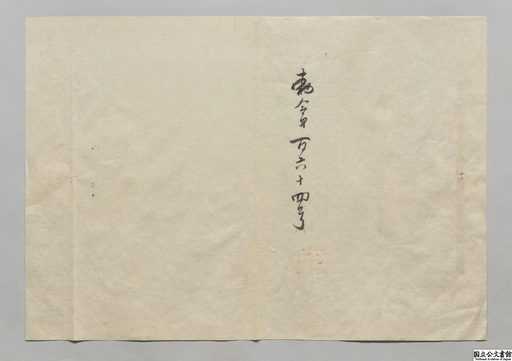 勅令第百六十四号
国立公文書館
National Archives of Japan